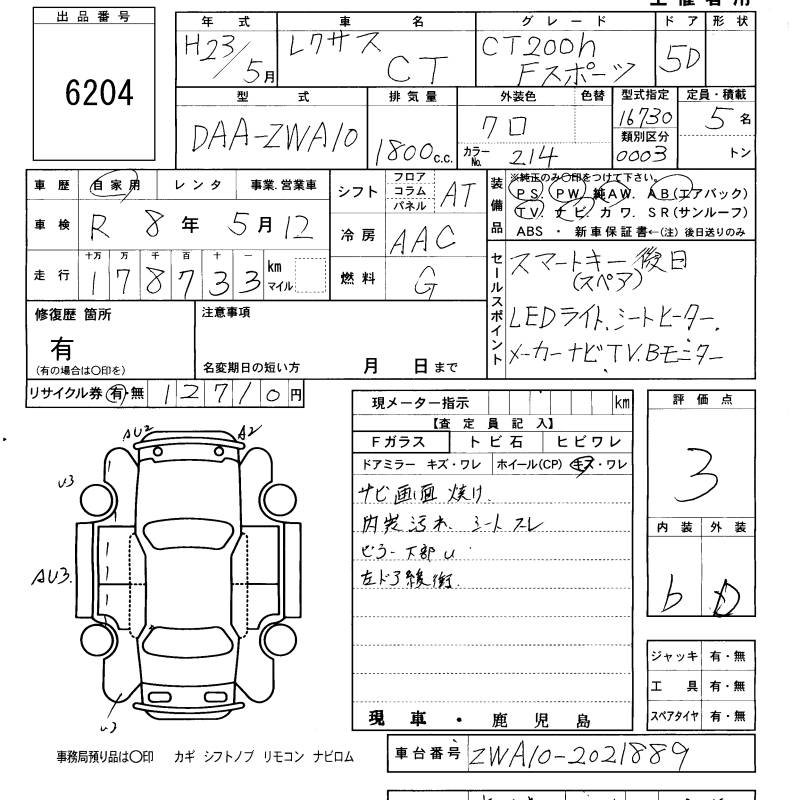 出品番号
6204
年式
H23/5月
車名
レクサス
CT
グレード
CT200h
Fスポーツ
ドア
5D
形状
型式
DAA-ZWA10
排気量
1800c.c.
外装色
クロ
色替
カラーNo.
214
型式指定
16730
類別区分
0003
定員・積載
5名
トン
車歴
自家用
レンタ
事業.営業車
車検
R 8年 5月 12
走行
十万 万 千 百 十 一
1 7 8 7 3 3 km
マイル
シフト
フロア
コラム
パネル
AT
冷房
AAC
燃料
G
装備品
※純正のみ○印をつけて下さい。
PS. PW. 純AW. AB(エアバック)
TV. ナビ. カワ. SR(サンルーフ)
ABS ・ 新車保証書←(注)後日送りのみ
セールスポイント
スマートキー 後日
(スペア)
LEDライト、シートヒーター、
メーカーナビ TV. Bモニター
修復歴 箇所
有
(有の場合は○印を)
注意事項
名変期日の短い方
月 日まで
リサイクル券 有・無 12710円
現メーター指示
km
【査定員記入】
Fガラス
トビ石
ヒビワレ
ドアミラー キズ・ワレ
ホイール(CP) キズ・ワレ
ナビ画面 焼け
内装汚れ シートスレ
ピラー下部 U
左ドア緩衝
現車・鹿児島
評価点
3
内装 外装
b D
ジャッキ 有・無
工具 有・無
スペアタイヤ 有・無
AU2
A2
U3
AU3.
U3
事務局預り品は○印 カギ シフトノブ リモコン ナビロム
車台番号
ZWA10-2021889